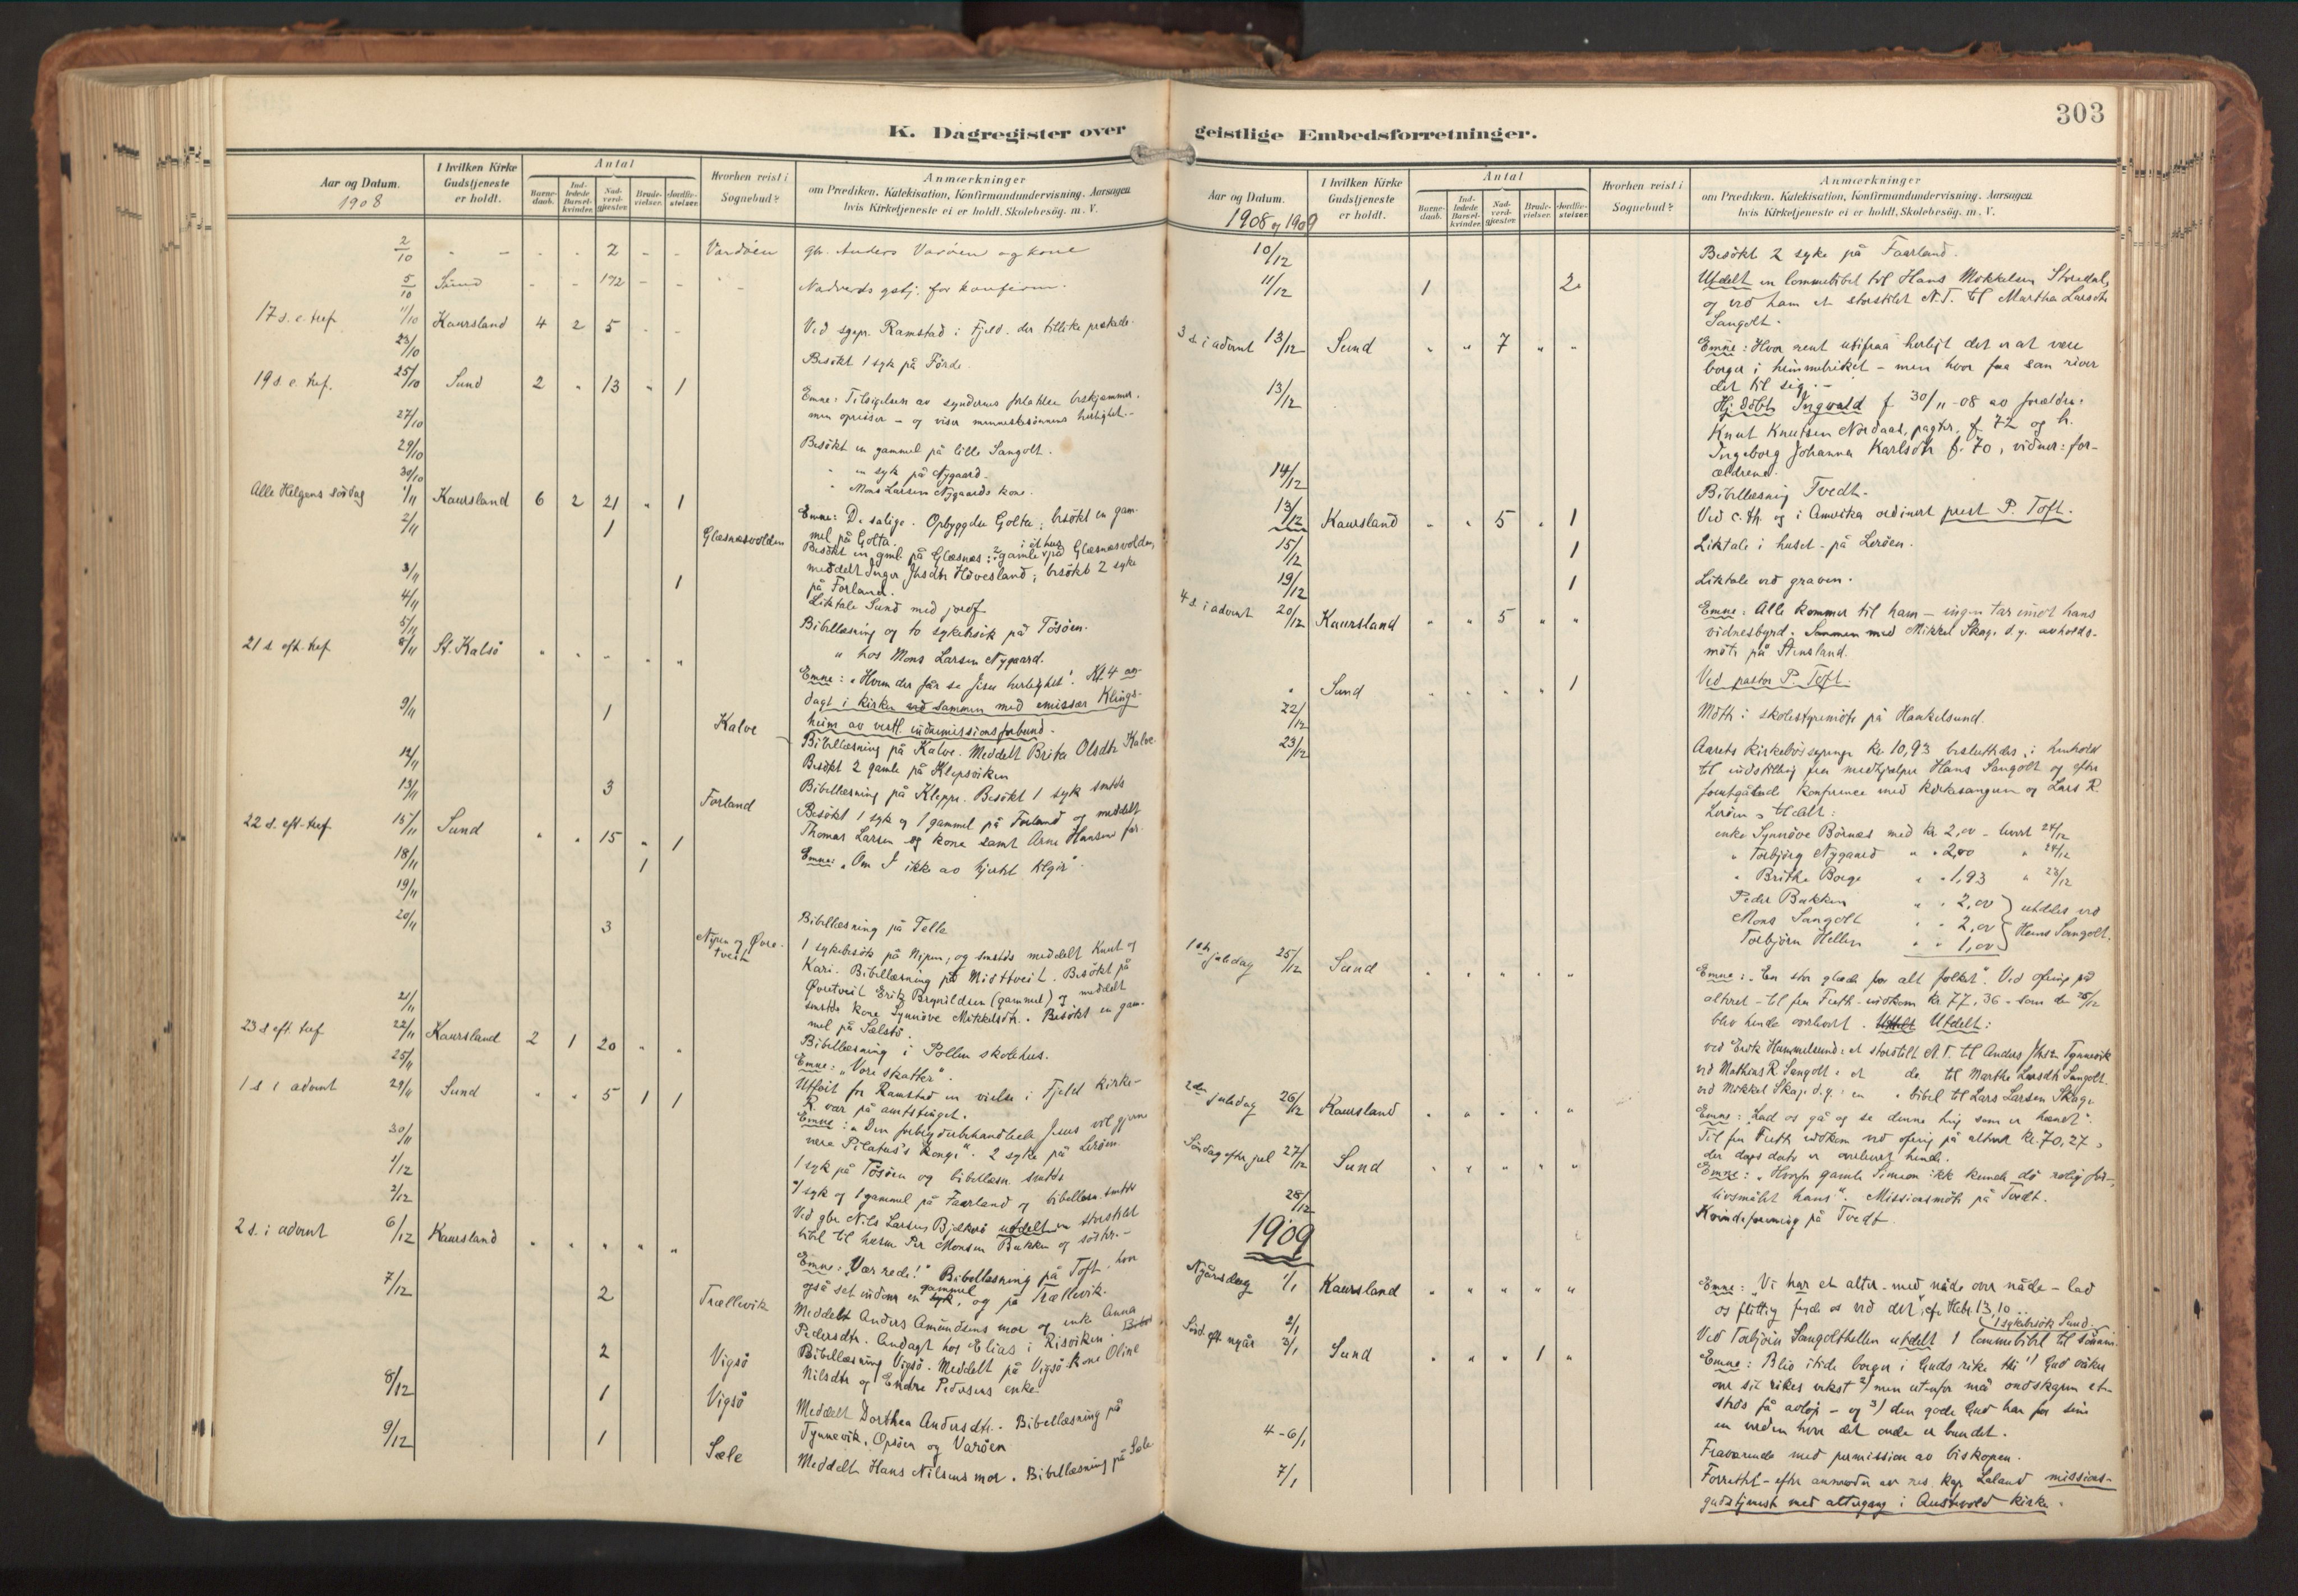 303
K. Dagregister over geistlige Embedsforretninger.
Aar og Datum. I hvilken Kirke Gudstjeneste er holdt. Antal Barnedaab. Indledede Barselkvinder. Nadverdgjester. Brudevielser. Jordfæstelser. Hvorhen reist i Sognebud? Anmærkninger om Prædiken, Katekisation, Konfirmandundervisning. Aarsagen hvis Kirketjeneste ei er holdt. Skolebesög. m. V.
1908
2/10 - - - - 2 - - Vardöen gbr. Anders Varöen og kone
5/10 Sund - - 172 - - - Nadverds gstj. for konfirm.
17 s. e. tref. 11/10 Kaursland 4 2 5 - - Ved sgpr. Ramstad i Fjeld. der tillike prekede.
23/10 Besökt 1 syk på Förde.
19 s. e. tref. 25/10 Sund 2 " 13 " 1 Emne: Tilsigelsen av syndernes forlatelse beskjæmmer.
men opreiser - og viser menneskesönnens herlighet. -
27/10 Besökt en gammel på lille Sangolt.
29/10 " en syk på Nygaard.
30/10 " Mons Larsen Nygaards kone.
Alle Helgens söndag 1/11 Kaursland 6 2 21 " 1 Emne: De salige. Opbyggelse Golta; besökt en gam-
mel på Golta.
2/11 1 Glæsnæsvolden Besökt en gml. på Glæsnæs: 2 gamle i et hus på Glæsnæsvolden,
meddelt Inger Jhsdtr Hövesland; besökt 2 syke
på Forland.
3/11 1 Liktale Sund med jordf.
4/11 Bibellæsning og to sykebesök på Tösöen.
5/11 " hos Mons Larsen Nygaard.
21 s. eft. tref 8/11 St. Kalsö " " " " " Emne: "Hvem der får se Jesu herlighet". Kl 4 an-
dagt i kirken ved sammen med emissær Klings-
heim av vestl. indremissionsforbund.
9/11 1 Kalve Bibellæsning på Kalve. Meddelt Brita Olsdtr Kalve.
12/11 Besökt 2 gamle på Klepsviken
13/11 3 Forland Bibellæsning på Kleppe. Besökt 1 syk smtds
Besökt 1 syk og 1 gammel på Forland og meddelt
Thomas Larsen og kone samt Arne Hansens far.
22 s. eft. tref 15/11 Sund " " 15 " 1 Emne: "Om I ikke av hjertet tilgir".
18/11 1
19/11 Bibellæsning på Telle
20/11 3 Nipen og Övre-tveit 1 sykebesök på Nipen, og smtds meddelt Knut og
Kari. Bibellæsning på Midttveit. Besökt på
Övretveit Erik Brynildsen (gammel) og meddelt
smtds kone Synnöve Mikkelsdtr. Besökt en gam-
mel på Sælstö.
21/11 Bibellæsning i Pollen skolehus.
23 s eft. tref 22/11 Kaursland 2 1 20 " " Emne: "Vore skatter".
25/11 Utfört for Ramstad en vielse i Fjeld kirke-
R. var på amtstinget.
1 s i advent 29/11 Sund " " 5 1 1 Emne: "Den forbryderbehandlede Jesus vil gjerne
være Pilatus's konge". 2 syke på Leröen.
30/11 1 syk på Tösöen og bibellæsn. smtds
1/12 1 syk og 1 gammel på Faarland og bibellæsn. smtds
2/12 Ved gbr Nils Larsen Bjelkerö utdelt en storstilet
bibel til Per Monsen Bakken og söstre. -
2 s. i advent 6/12 Kaursland " " " " " Emne: "Vær rede!" Bibellæsning på Toft, hvor
også set indom en gammel, og på Trællevik.
7/12 2 Trællevik Meddelt Anders Amundsens mor og enke Anna
Pedersdtr. Andagt hos Elias i Risviken.
2 Vigsö Bibellæsning Vigsö. Meddelt på Vigsö kone Oline
Nilsdtr og Endre Pedersens enke.
8/12 1 Vigsö Meddelt Dorthea Andersdtr. Bibellæsning på
Tynnevik, Opsöen og Varöen
9/12 1 Sæle Meddelt Hans Nilsens mor. Bibellæsning på Sæle
Aar og Datum. I hvilken Kirke Gudstjeneste er holdt. Antal Barnedaab. Indledede Barselkvinder. Nadverdgjester. Brudevielser. Jordfæstelser. Hvorhen reist i Sognebud? Anmærkninger om Prædiken, Katekisation, Konfirmandundervisning. Aarsagen hvis Kirketjeneste ei er holdt. Skolebesög. m. V.
1908 og 1909
10/12 Besökt 2 syke på Faarland.
11/12 1 2 Utdelt en lommebibel til Hans Mikkelsen Storedal,
og ved ham et storstilet N.T. til Martha Larsdtr
Sangolt.
3 s. i advent 13/12 Sund " " 7 " " Emne: Hvor rent utifraa herligt det er at være
borger i himmelriket - men hvor faa som river
det til sig. -
13/12 Hj. döbt Ingvald f. 30/11-08 av forældre:
Knut Knutsen Nordaas, pagter, f. 72 og h.
Ingeborg Johanna Karlsdtr f. 70, vidner: for-
ældrene.
14/12 Bibellæsning Tvedt.
13/12 Kaursland " " 5 " 1 Ved c. th. og i Amerika ordinert prest P. Toft.
15/12 1 Liktale i huset på Leröen.
19/12 1 Liktale ved graven.
4 s. i advent 20/12 Kaursland " " 5 " " Emne: Alle kommer til ham - ingen tar imot hans
vidnesbyrd. Sammen med Mikkel Skage d.y. avholds-
möte på Steinsland.
" Sund " " " " 1 Ved pastor P. Toft.
22/12 Möte i skolestyremöte på Haakelsund.
23/12 Aarets kirkebössepenge kr 10,93 besluttedes, i henhold
til indstilling fra medhjælper Hans Sangolt og efter
forutgående konferense med kirkesangeren og Lars R.
Leröen utdelt:
enke Synnöve Börnes med kr. 2,00 - levert 24/12
" Torbjörg Nygaard " " 2,00 " 24/12
" Brithe Borge " " 1,93 " 23/12
Peder Bakken " " 2,00 utdeles ved
Mons Sangolt " " 2,00 Hans Sangolt.
Torbjörn Hellen " " 1,00
1ste juledag 25/12 Sund " " " " " Emne: "En stor glæde for alt folket". Ved ofring på
altret - til fru Futh - indkom kr. 77,36 - som den 28/12
blev hende overlevert. Utdelt:
ved Erik Hummelsund: et storstilt N.T. til Anders Jhsen Tynnevik
ved Mathias R Sangolt: et do. til Marthe Larsdtr Sangolt.
ved Mikkel Skage d.y.: en " bibel til Lars Larsen Skage
2den juledag 26/12 Kaursland " " " " " Emne: "Lad os gå og se denne ting som er hændt".
Til fru Futh indkom ved ofring på altret kr. 70,27,
der dags dato er overlevert hende.
Söndag efter jul 27/12 Sund " " " " " Emne: "Hvorfor gamle Simeon ikke kunde dö rolig för-
livsmålet hans". Missionsmöte på Tvedt.
28/12 Kvindeforening på Tvedt.
1909
Nyårsdag 1/1 Kaursland " " " " " Emne: "Vi har et alter med nåde over nåde - lad
os flittig föde os ved det", efr. Hebr. 13,10..
2/1 1 sykebesök Sund.
Ved Torbjörn Sangolthellen utdelt 1 lommebibel til sönnen
Sönd. eft. nyår 3/1 Sund " " " 1 " Emne: Bliv itide borger i Guds rike thi 1) Gud våker
over sit rikes vekst 2) men utenfor må ondskapen et-
steds få avlöp - og 3) den gode Gud har for sine
en verden hvor det onde er bundet.
4-6/1 Fraværende med permission av biskopen.
7/1 Forrettet - efter anmodn. av res. kap. Laland missions-
gudstjeneste med altergang i Austevold kirke.